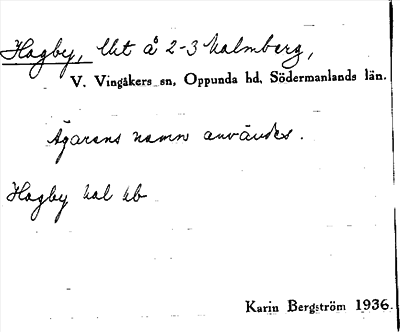 Hagby, lht å 2-3 Malmberg,
V. Vingåkers sn, Oppunda hd, Södermanlands län.
Ägarens namn användes.
Hagby hal hb
Karin Bergström 1936.